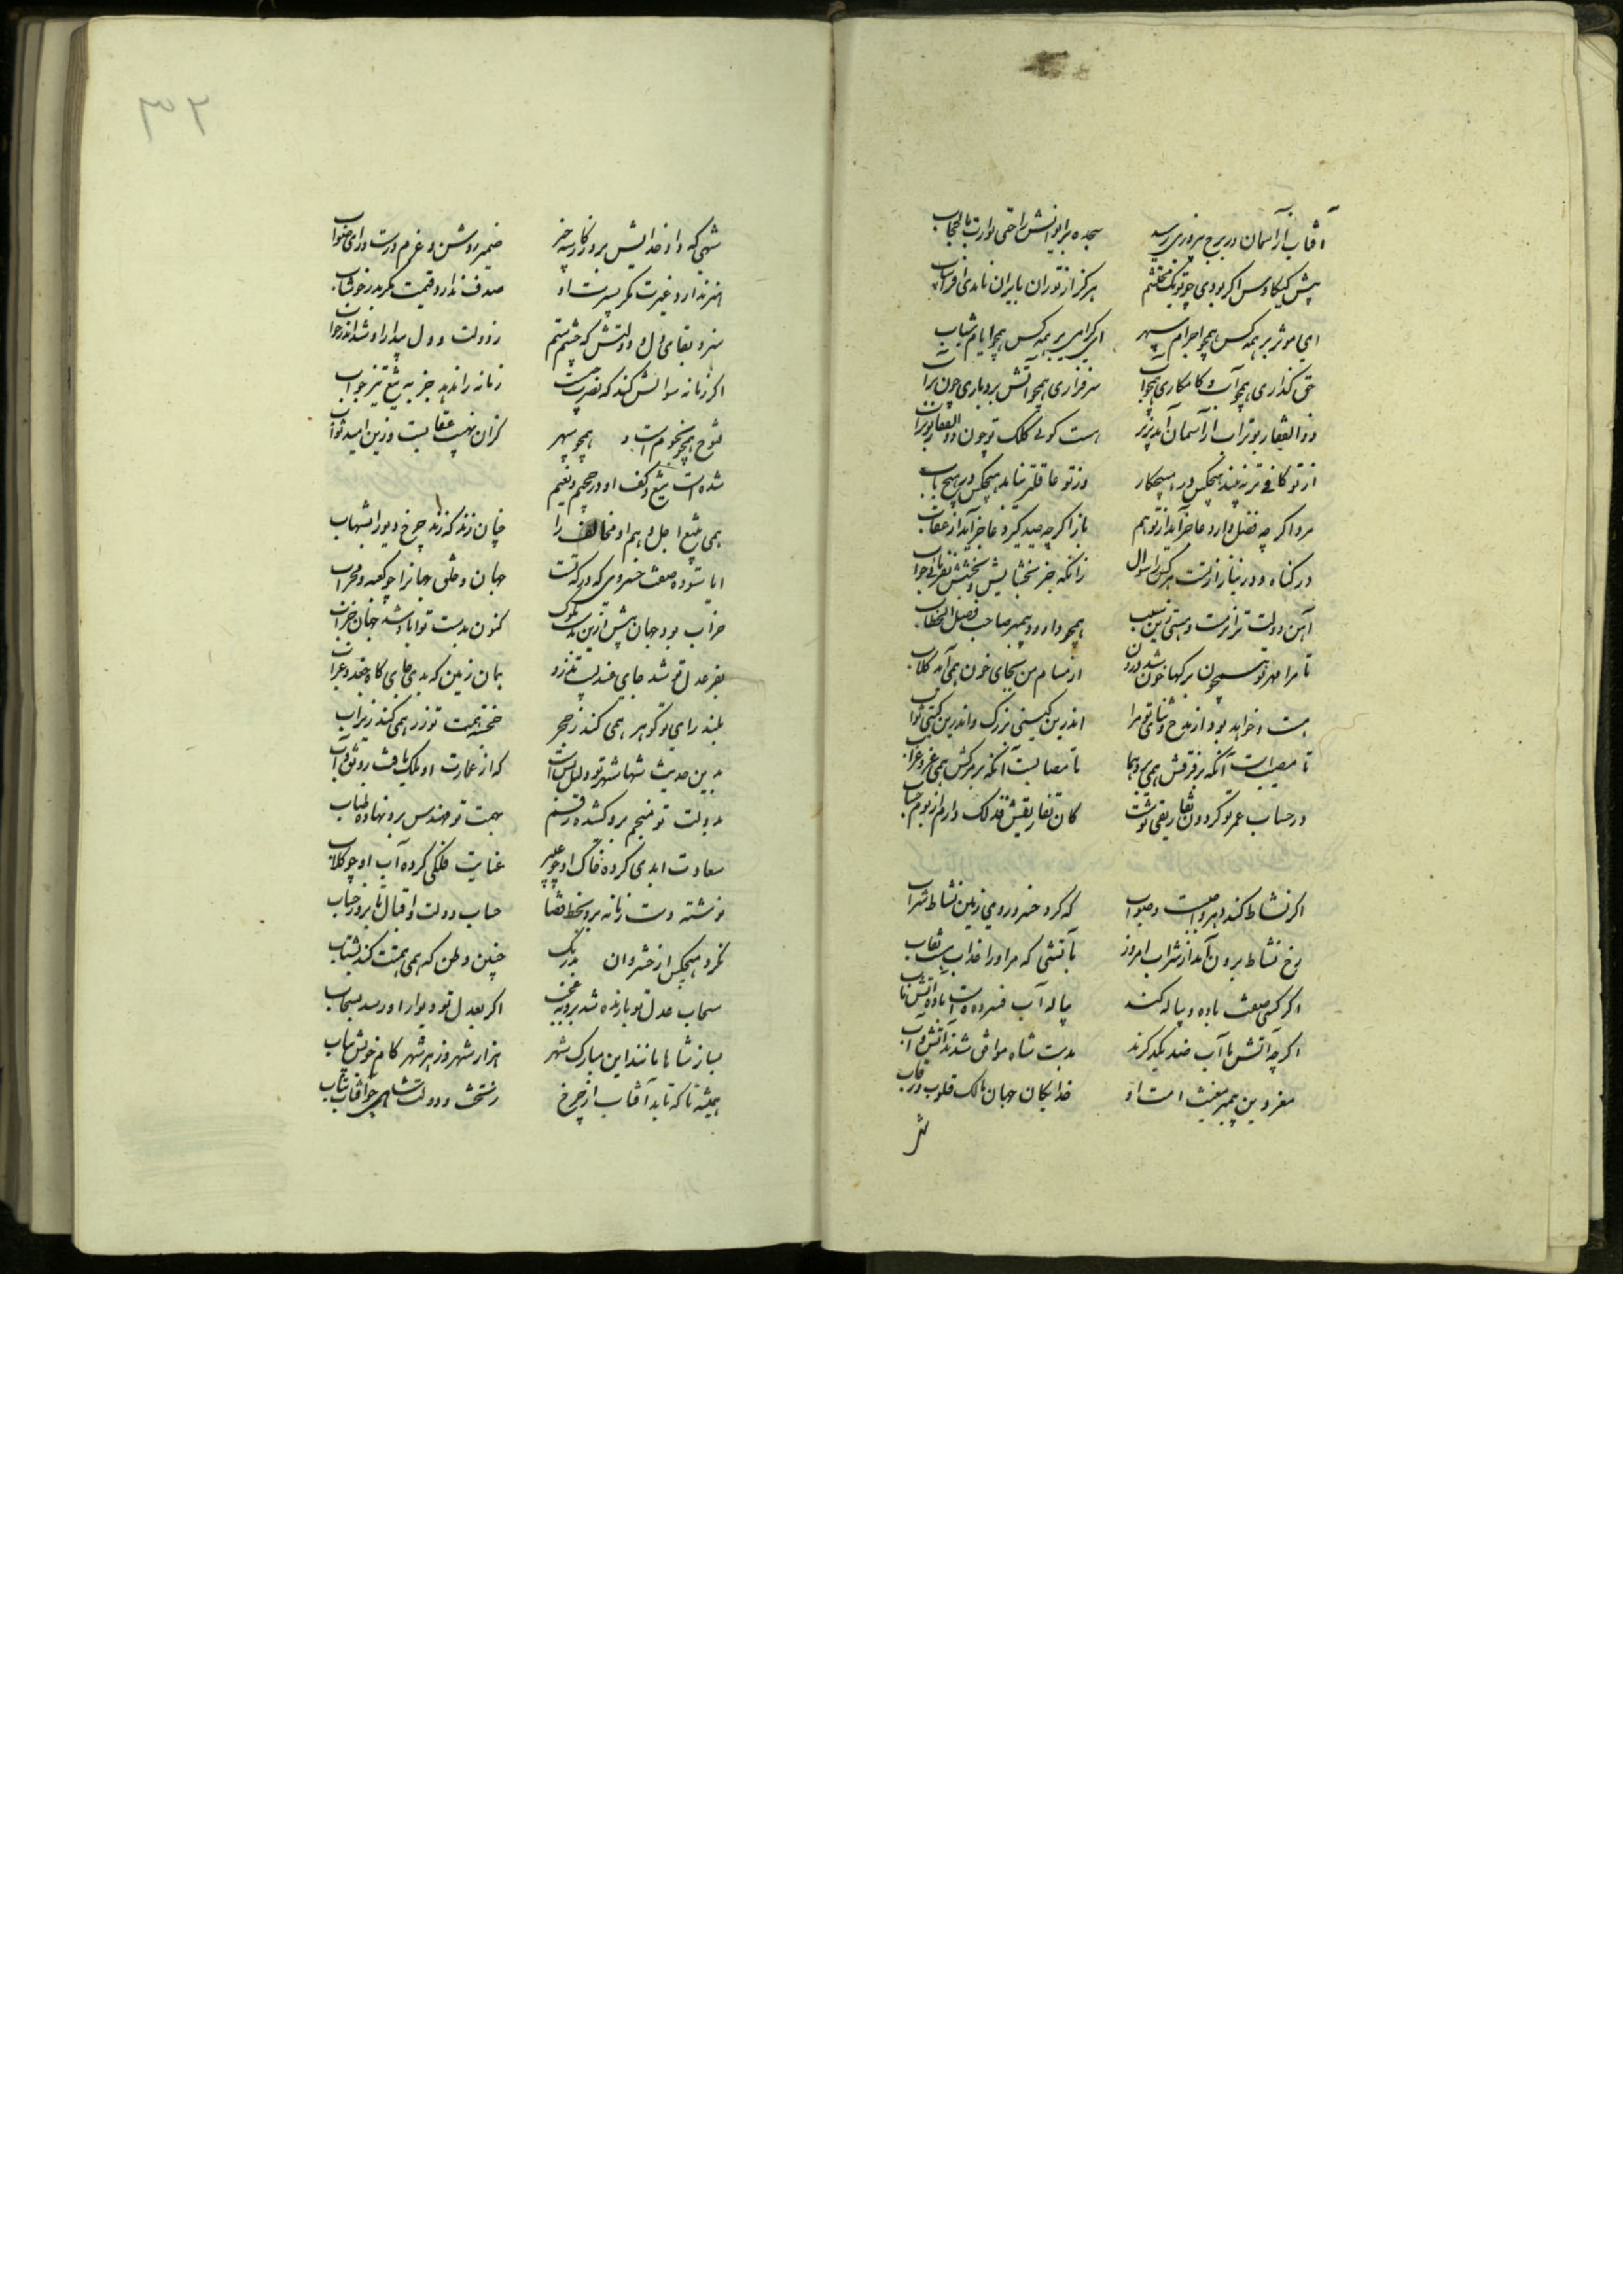 آفتاب از آسمان در برج پیروزی رسید سجده بر ایوانش را حتی توارت بالحجاب
پیش کیکاوس اکر بودی چو تو یک محتشم هرکز از توران بایران نامدی افراسیاب
ای موثر بر همه کس همچو اجرام سپهر ای کرامی بر همه کس همچو ایام شباب
حق کذاری همچو آب و کامکاری همچو سرفرازی همچو آتش بردباری چون تراب
ذوالفقار بوتراب از آسمان آمد بزیر هست کوئی کلک تو چون ذوالفقار بوتراب
از تو کافی تر نه بیند هیچکس در هیچکار وز تو عاقلتر نیابد هیچکس در هیچ باب
مرد اکر چه فضل دارد عاجز آید از تو هم باز اکر چه صید کیرد عاجز آید از عقاب
در کناه و در نیاز از تست هر کس را سوال زانکه جز بخشایش و بخشش نفرمائی جواب
آهن دولت ترا نرمست و هستی زین سبب همچو داود پیمبر صاحب فصل الخطاب
تا مرا مهر تو همچون در رکها خون شد درون از مسام من بجای خون همی آید کلاب
هست و خواهد بود از مدح و ثنای تو مرا اندرین کیتی بزرک و اندرین کیتی ثواب
تا مصیب است آنکه بر فرقش همی پرد هما تا مصابست آنکه بر مرکش همی غرد غراب
در حساب عمر تو کردون تفاریقی نوشت کان تفاریقش فذلک دارم از یوم حساب
اکر نشاط کند دهر واجبست و صواب که کرد خسرو روی زمین نشاط شراب
رخ نشاط برون آمد از شراب امروز بآتشی که مر او را خداب نقاب
اکر کسی صفت باده و پیاله کند پیاله آب فسرده است و باده آتش ناب
اکر چه آتش با آب ضد یکدکرند بدست شاه موافق شدند آتش و آب
معز دین پیمبر مغیث امت او خدایکان جهان مالک قلوب و رقاب
شهی که داد خدایش بروزکار سه چیز ضمیر روشن و عزم درست و رای صواب
هنر ندارد غیرت مکر بسیرت او صدف ندارد قیمت مکر بدر خوشاب
سزد بقای دل و دولتش که چشم ستم ز دولت و دل بیدار او شد اندر خواب
اکر زمانه سوالش کند که نصرت چیست زمانه را ندهد جز به تیغ تیز جواب
فتوح همچو نجوم است و همچو سپهر کزان نهیب عقابست وزین امید ثواب
شده است تیغ و کف او در جحیم و نعیم
همی بتیغ اجل وهم او مخالف را چنان زند که زند چرخ دیو را بشهاب
ایا ستوده صفت خسروی که درکه تست جهان و خلق جهانرا چو کعبه و محراب
خراب بود جهان پیش ازین بدست ملوک کنون بدست تو آباد شد جهان خراب
بفر عدل تو شد جای عندلیب و تذرو همان زمین که بدی جایکاه جغد و غراب
بلند رای تو کوهر همی کند ز حجر خجسته همت تو زر همی کند ز تراب
بدین حدیث شها شهر تو دلیل بس است که از عمارت او ملک یافت رونق و آب
بدولت تو منجم برو کشیده رقم بهمت تو مهندس برو نهاده طناب
سعادت ابدی کرده خاک او چو عبیر عنایت فلکی کرده آب او چو کلاب
نوشته دست زمانه برو بخط قضا حساب دولت و اقبال تا بروز حساب
نکرد هیچکس از خسروان بدرنک چنین وطن که همی همتت کند بشتاب
سحاب عدل تو بارنده شد برو نه عجب اکر بعدل تو دیوار او رسد بسحاب
بساز شاها مانند این مبارک شهر هزار شهر وز هر شهر کام خویش بیاب
همیشه تا که بتابد آفتاب از چرخ ز تخت و دولت شاهی چو آفتاب بتاب